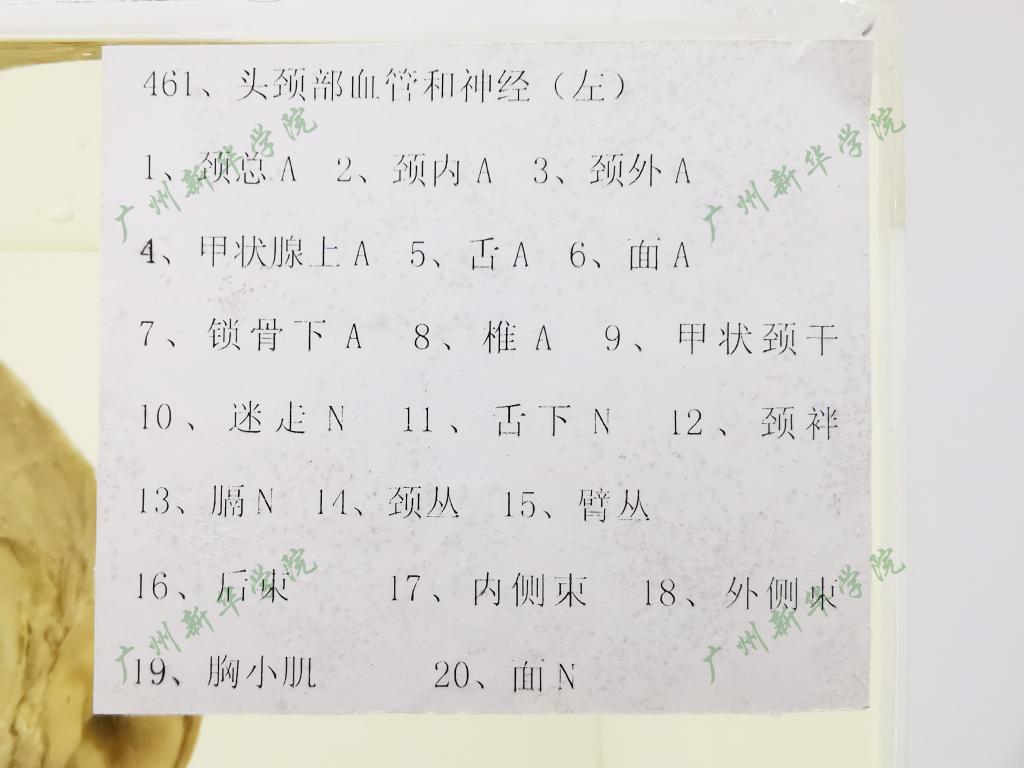 461、头颈部血管和神经（左）
1、颈总A 2、颈内A 3、颈外A
4、甲状腺上A 5、舌A 6、面A
7、锁骨下A 8、椎A 9、甲状颈干
10、迷走N 11、舌下N 12、颈袢
13、膈N 14、颈丛 15、臂丛
16、后束 17、内侧束 18、外侧束
19、胸小肌 20、面N
广州新华学院
广州新华学院
广州新华学院
广州新华学院